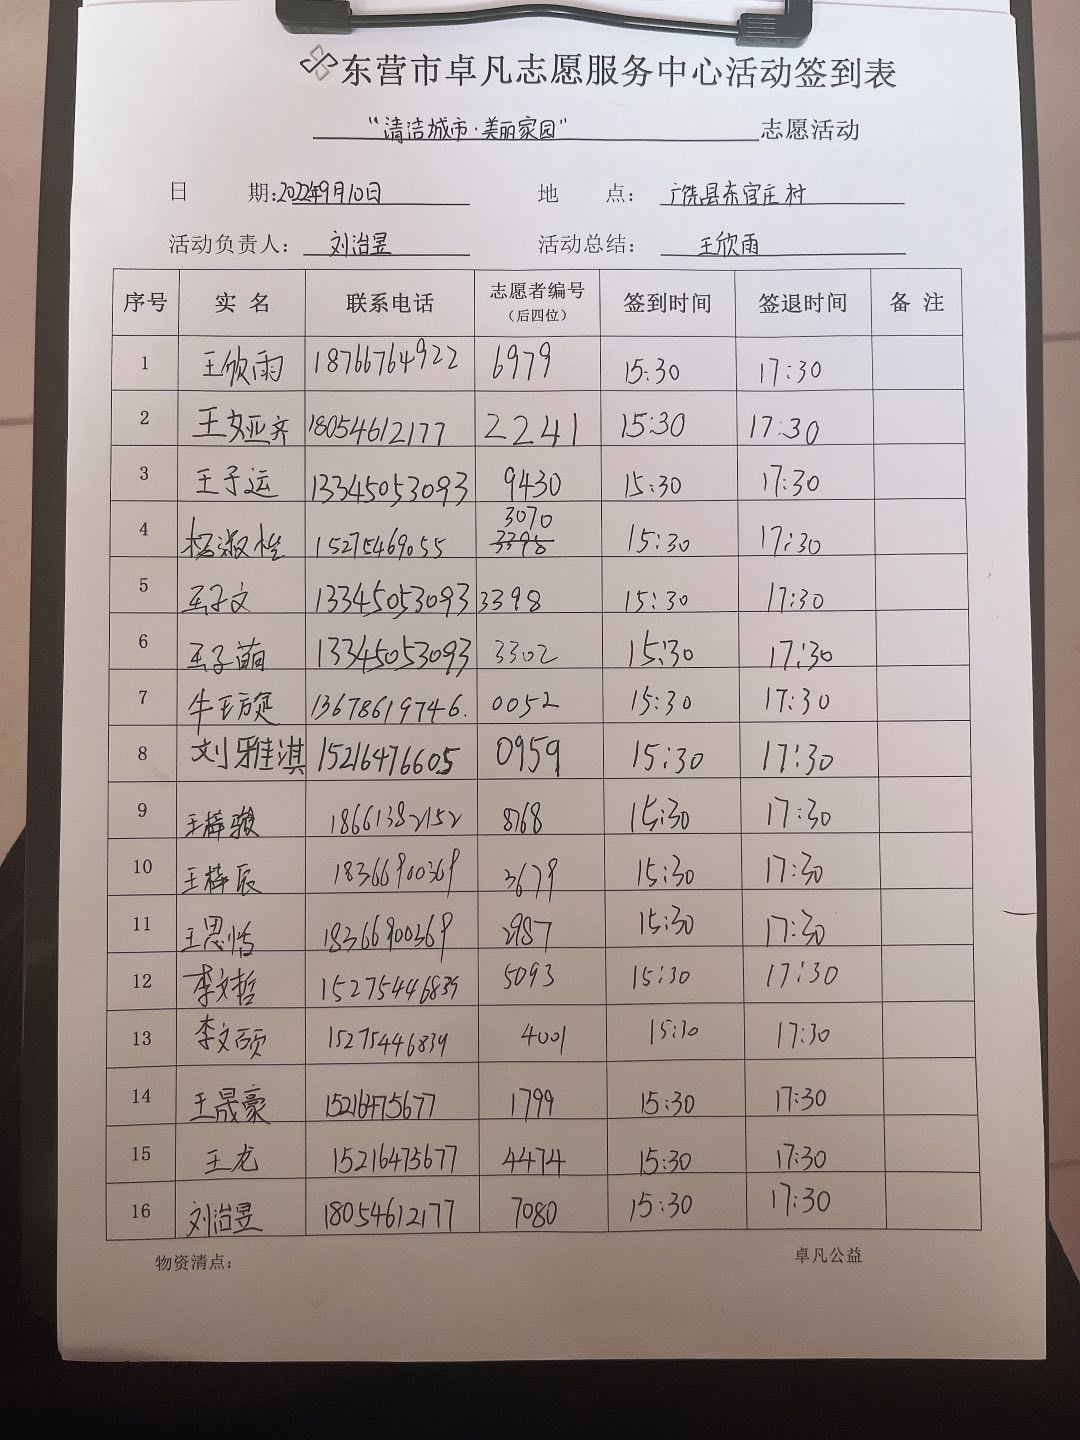 东营市卓凡志愿服务中心活动签到表
“清洁城市·美丽家园” 志愿活动
日 期: 2022年9月10日 地 点: 广饶县东官庄村
活动负责人: 刘治昱 活动总结: 王欣雨
序号 实名 联系电话 志愿者编号（后四位） 签到时间 签退时间 备注
1 王欣雨 18766764922 6979 15:30 17:30
2 18054612177 2241 15:30 17:30
3 王子运 13345053093 9430 15:30 17:30
4 15275469055 3070 3398 15:30 17:30
5 王子文 13345053093 3398 15:30 17:30
6 王子萌 13345053093 3302 15:30 17:30
7 13678619746. 0052 15:30 17:30
8 刘雅淇 15216476605 0959 15:30 17:30
9 王梓骏 18661382152 8768 15:30 17:30
10 王梓辰 18366900369 3679 15:30 17:30
11 王思恬 18366900369 2987 15:30 17:30
12 李文哲 15275446839 5093 15:30 17:30
13 李文硕 15275446839 4001 15:30 17:30
14 王晟豪 15216475677 1799 15:30 17:30
15 王龙 15216475677 4474 15:30 17:30
16 刘治昱 18054612177 7080 15:30 17:30
物资清点: 卓凡公益